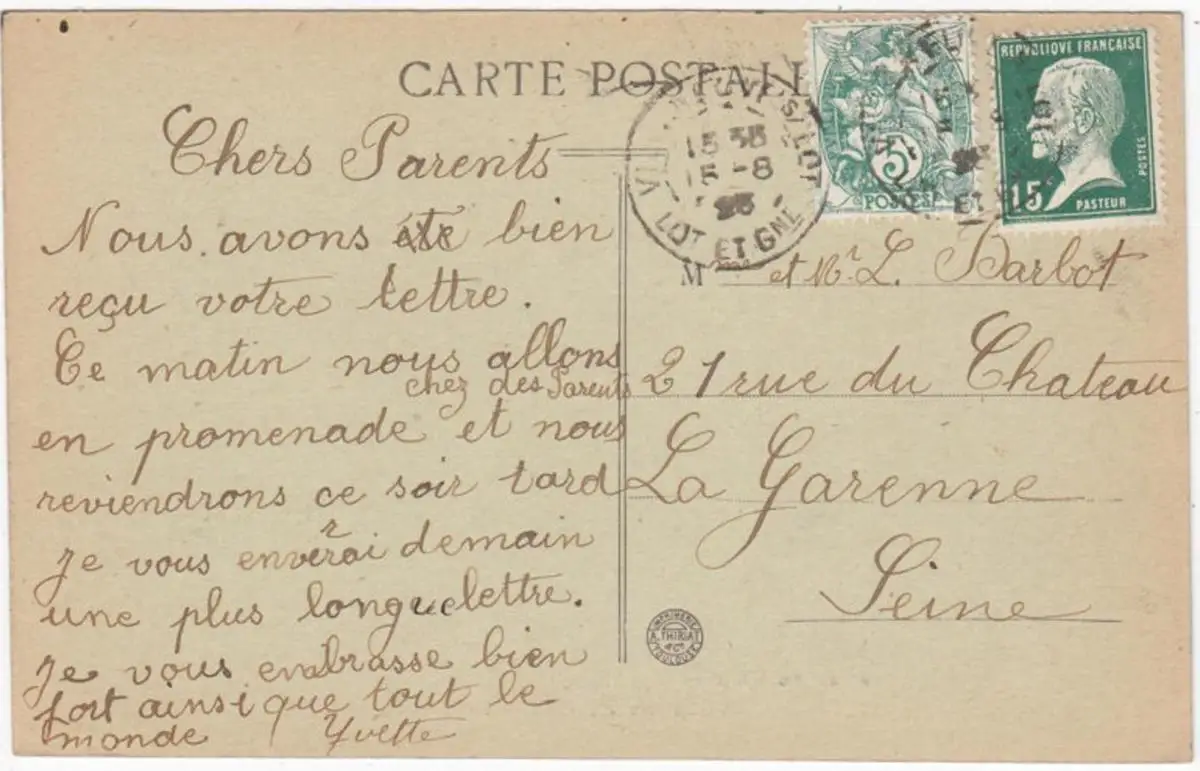 CARTE POSTALE
Chers Parents
Nous avons été bien
reçu votre lettre.
Ce matin nous allons
chez des Parents
en promenade et nous
reviendrons ce soir tard
Je vous enverrai demain
une plus longue lettre.
Je vous embrasse bien
fort ainsi que tout le
monde Yvette
15 35
15 -8
25
LOT ET GNE
S/LOT
5
POSTES
REPVBLIQUE FRANÇAISE
POSTES
15
PASTEUR
M et Mr L. Barbot
21 rue du Chateau
La Garenne
Seine
IMPRIMERIE
A. THIRIAT
TOULOUSE